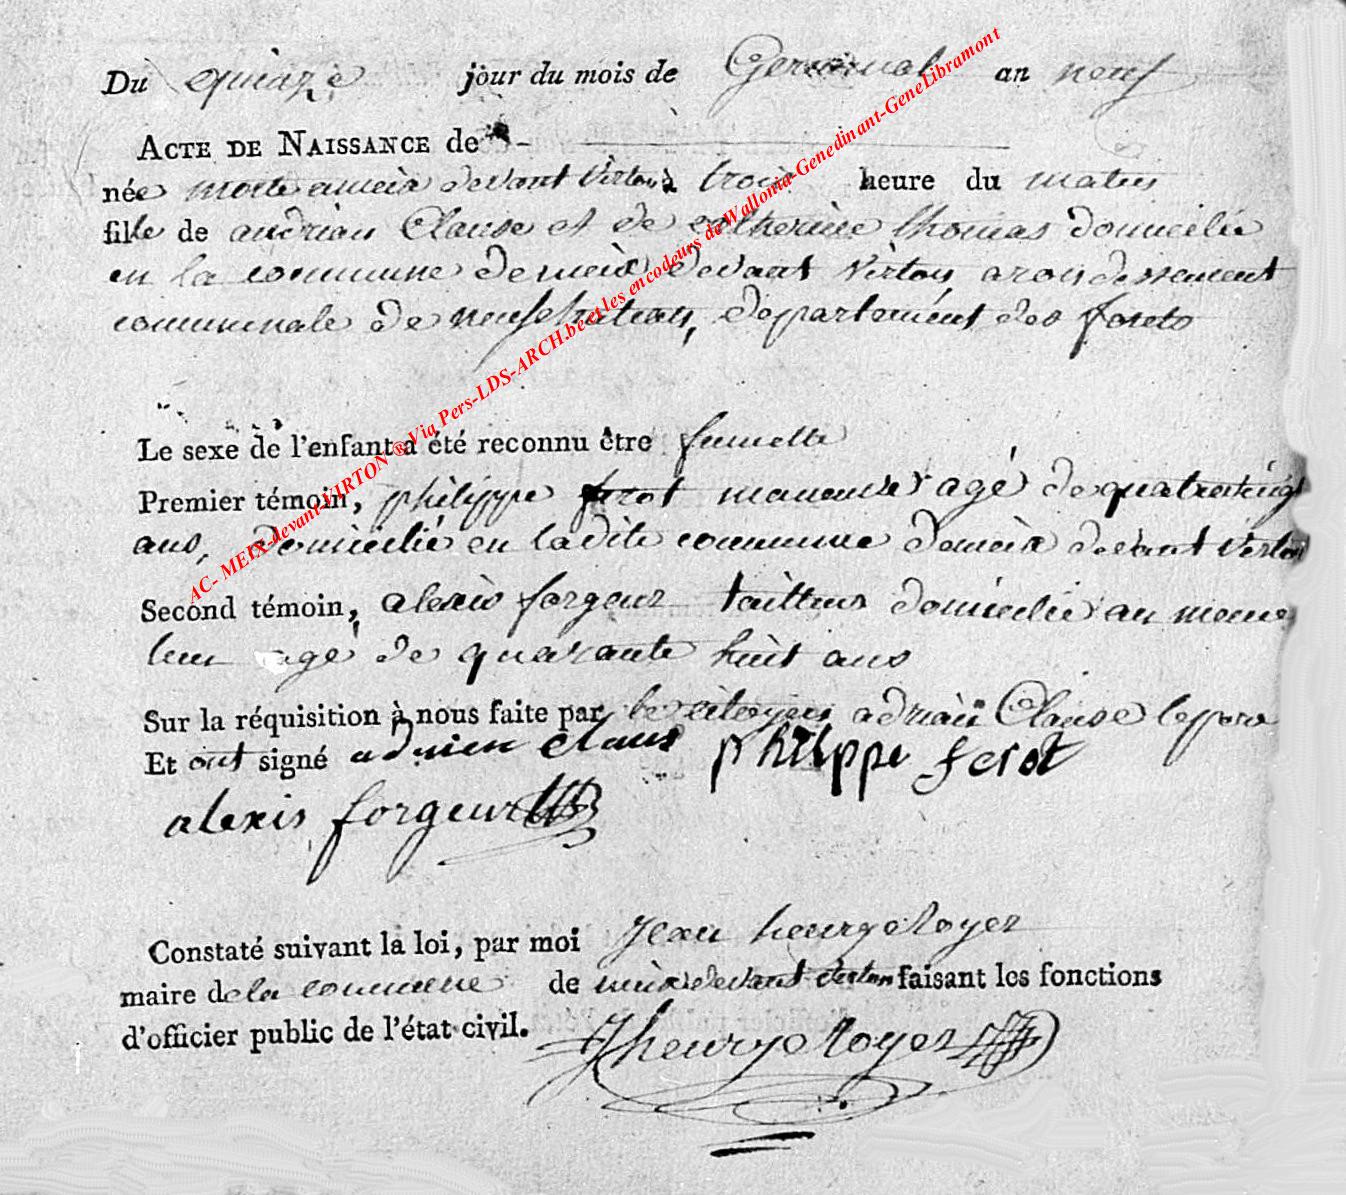 Du quinze jour du mois de Germinal an neuf
ACTE DE NAISSANCE de -
née morte a meix devant Virton à trois heure du matin
fille de andrian Clause et de catherine thomas domicilié
en la commune de meix devant virton arondissement
communale de neufchateau, département des forets
Le sexe de l'enfant a été reconnu être fumelle
Premier témoin, philippe ferot maneuvre agé de quatrevingt
ans, domicilié en ladite commune demeix devant virton
Second témoin, alexis forgeur tailleur domicilié au meme
lieu agé de quarante huit ans
Sur la réquisition à nous faite par le citoyen adriain Clause le pere
Et ont signé adrien claus philppe ferot
alexis forgeur
Constaté suivant la loi, par moi Jean henry Royer
maire de la commune de meix devant virton faisant les fonctions
d'officier public de l'état civil. Jhenry Royer
AC- MEIX-devant-VIRTON ® Via Pers-LDS-ARCH.be et les encodeurs de Wallonia-Genedinant-GeneLibramont